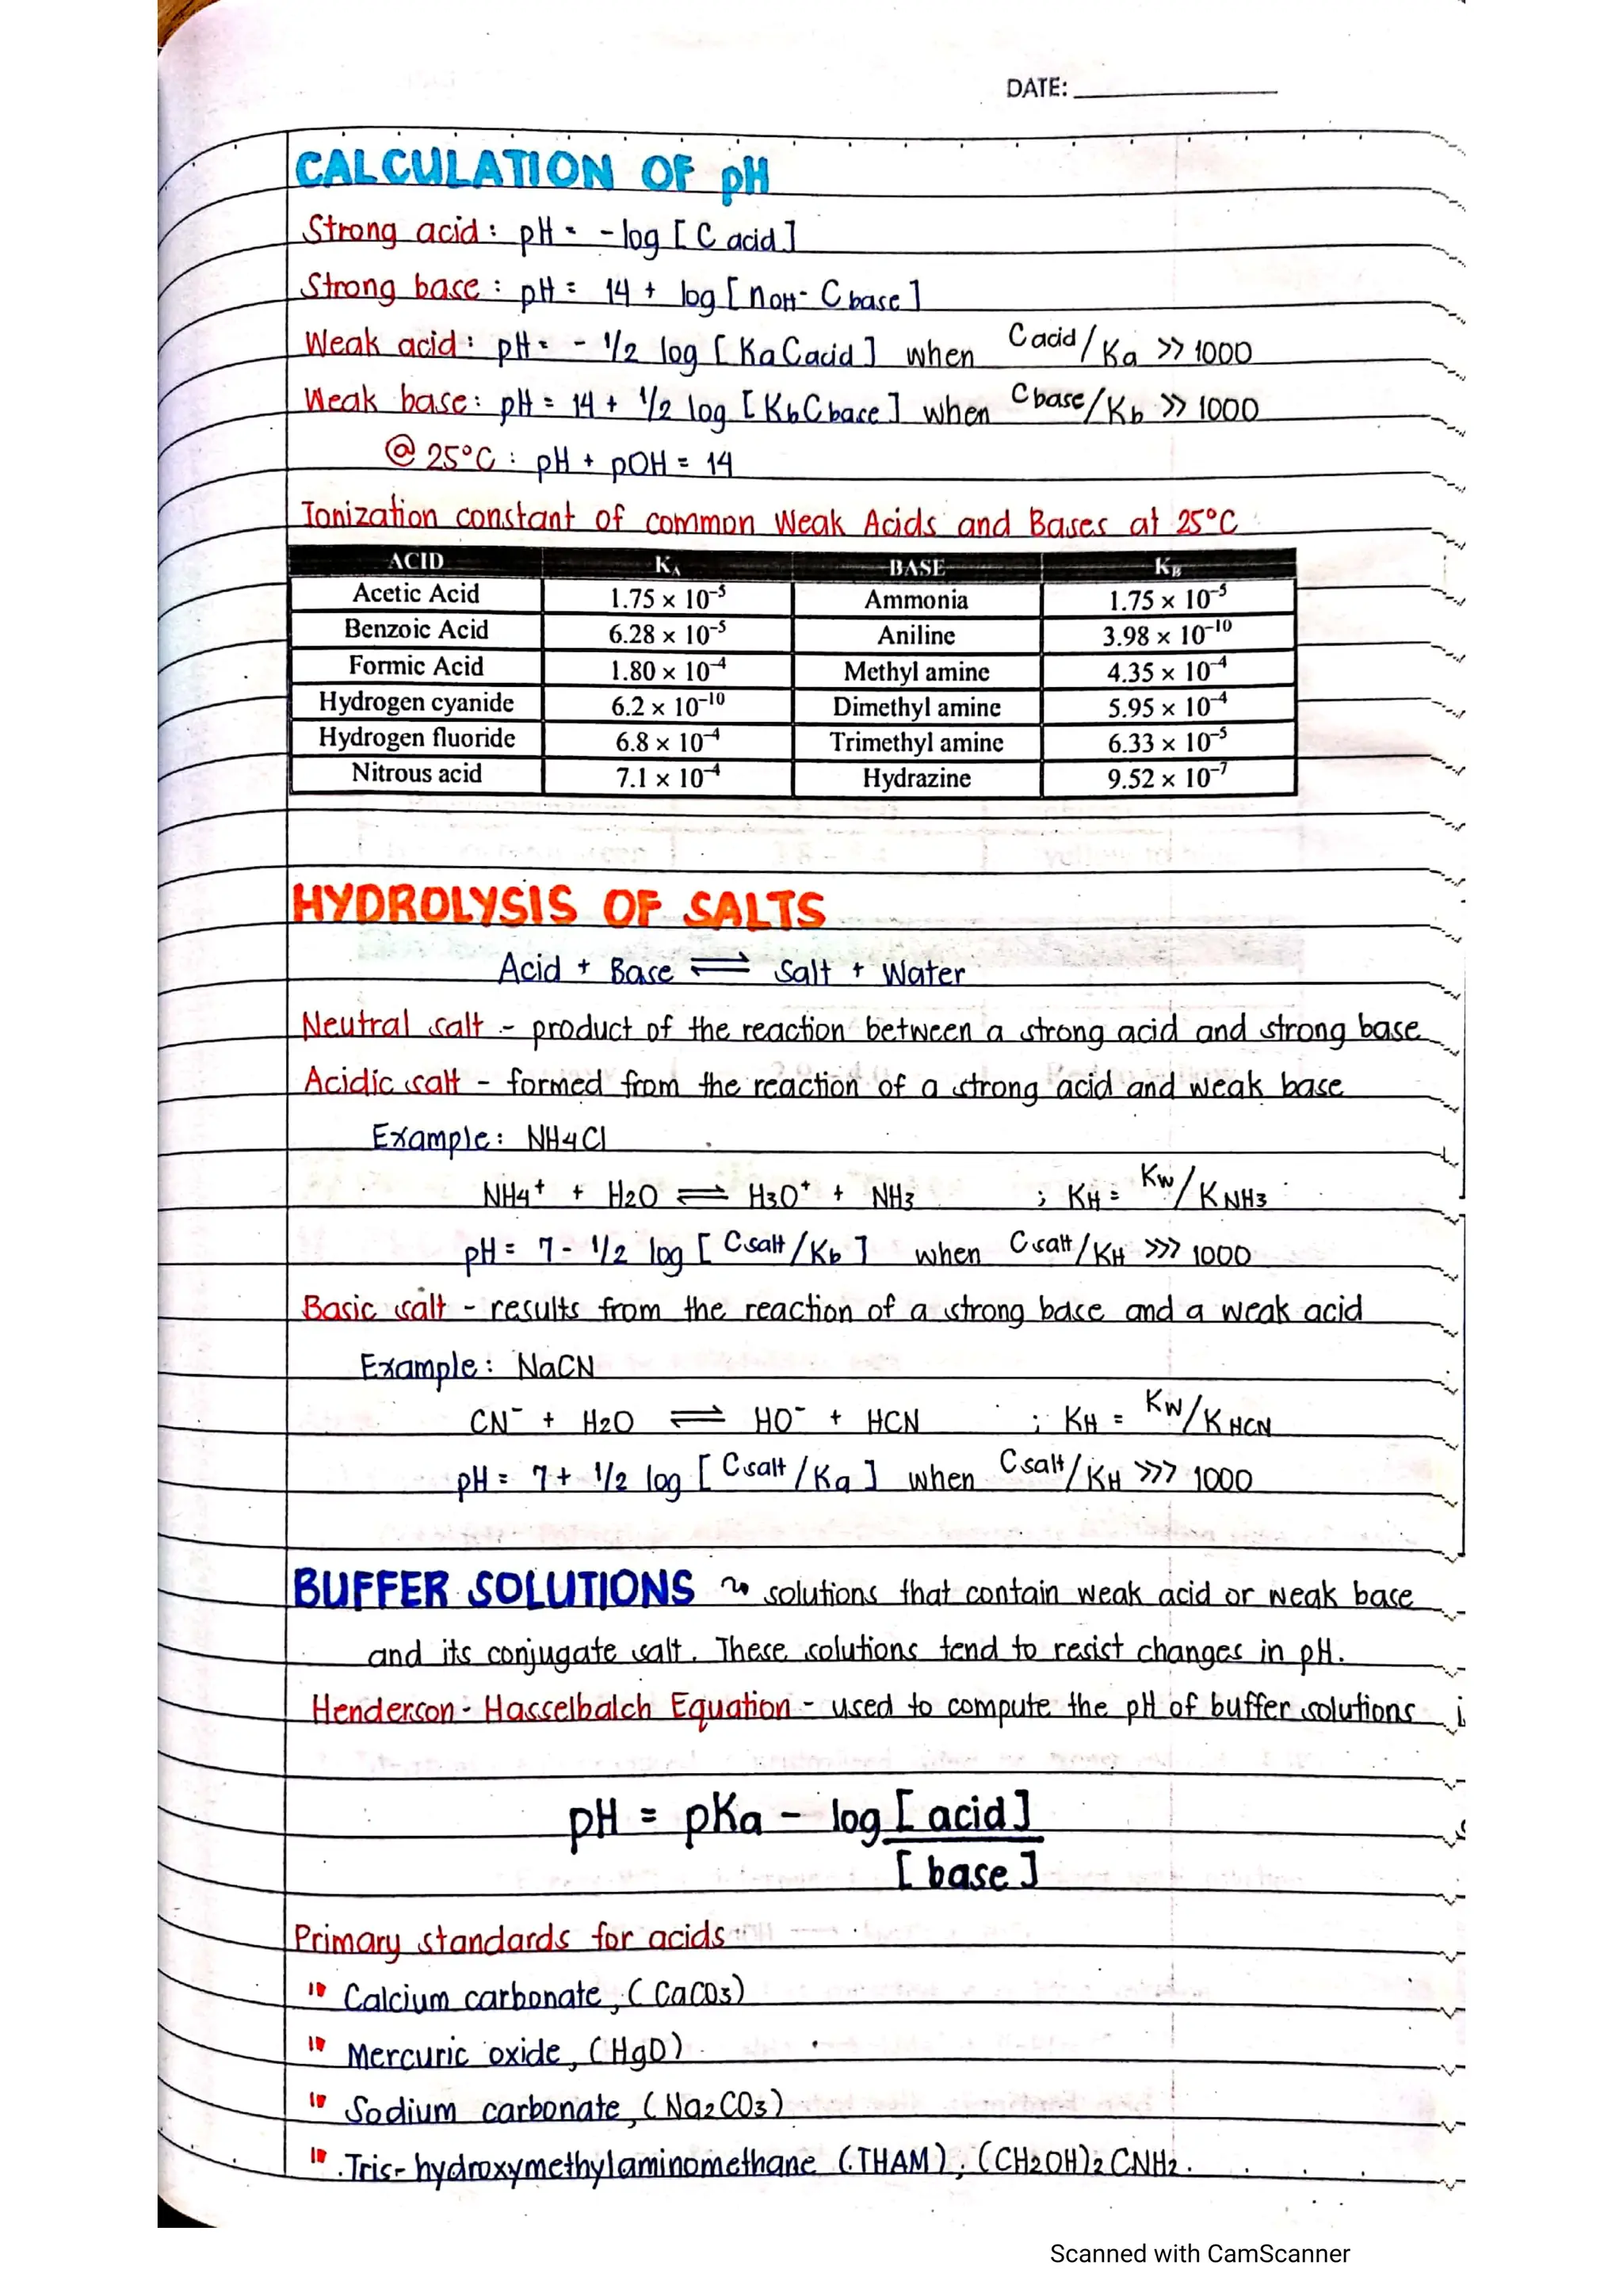 DATE:
CALCULATION OF pH
Strong acid: pH = -log [C acid]
Strong base: pH = 14 + log [nOH- Cbase]
Weak acid: pH = - 1/2 log [KaCacid] when Cacid/Ka >> 1000
Weak base: pH = 14 + 1/2 log [KbCbase] when Cbase/Kb >> 1000
@ 25°C : pH + pOH = 14
Ionization constant of common Weak Acids and Bases at 25°C
ACID KA BASE KB
Acetic Acid 1.75 × 10⁻⁵ Ammonia 1.75 × 10⁻⁵
Benzoic Acid 6.28 × 10⁻⁵ Aniline 3.98 × 10⁻¹⁰
Formic Acid 1.80 × 10⁻⁴ Methyl amine 4.35 × 10⁻⁴
Hydrogen cyanide 6.2 × 10⁻¹⁰ Dimethyl amine 5.95 × 10⁻⁴
Hydrogen fluoride 6.8 × 10⁻⁴ Trimethyl amine 6.33 × 10⁻⁵
Nitrous acid 7.1 × 10⁻⁴ Hydrazine 9.52 × 10⁻⁷
HYDROLYSIS OF SALTS
Acid + Base ⇌ Salt + Water
Neutral salt - product of the reaction between a strong acid and strong base
Acidic salt - formed from the reaction of a strong acid and weak base
Example: NH4Cl
NH4⁺ + H2O ⇌ H3O⁺ + NH3 ; KH = Kw/KNH3
pH = 7 - 1/2 log [Csalt/Kb] when Csalt/KH >>> 1000
Basic salt - results from the reaction of a strong base and a weak acid
Example: NaCN
CN⁻ + H2O ⇌ HO⁻ + HCN ; KH = Kw/KHCN
pH = 7 + 1/2 log [Csalt/Ka] when Csalt/KH >>> 1000
BUFFER SOLUTIONS ~ solutions that contain weak acid or weak base
and its conjugate salt. These solutions tend to resist changes in pH.
Henderson-Hasselbalch Equation - used to compute the pH of buffer solutions
pH = pKa - log [acid]
[base]
Primary standards for acids
Calcium carbonate, (CaCO3)
Mercuric oxide, (HgO)
Sodium carbonate, (Na2CO3)
Tris-hydroxymethylaminomethane (THAM), (CH2OH)2CNH2.
Scanned with CamScanner